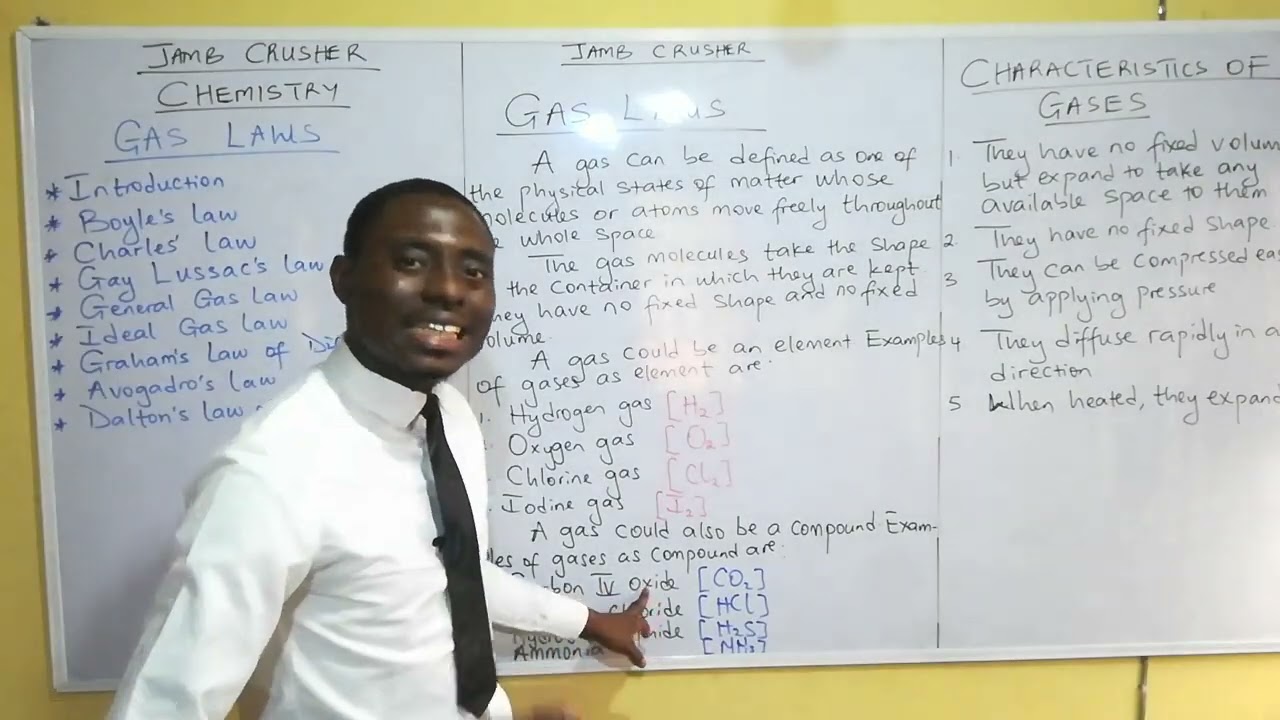 JAMB CRUSHER
CHEMISTRY
GAS LAWS
* Introduction
* Boyle's law
* Charles' law
* Gay Lussac's law
* General Gas law
* Ideal Gas law
* Graham's Law of
* Avogadro's law
* Dalton's law
JAMB CRUSHER
GAS
A gas can be defined as one of
the physical states of matter whose
molecules or atoms move freely throughout
whole space
The gas molecules take the shape
the container in which they are kept
They have no fixed shape and no fixed
volume.
A gas could be an element Examples
of gases as element are:
1. Hydrogen gas [H₂]
Oxygen gas [O₂]
Chlorine gas [Cl₂]
Iodine gas [I₂]
A gas could also be a compound Exam-
les of gases as compound are:
IV oxide [CO₂]
Chloride [HCl]
[H₂S]
Ammonia [NH₃]
CHARACTERISTICS OF
GASES
1. They have no fixed volum
but expand to take any
available space to them
2. They have no fixed shape
3 They can be compressed eas
by applying pressure
4 They diffuse rapidly in a
direction
5 When heated, they expand